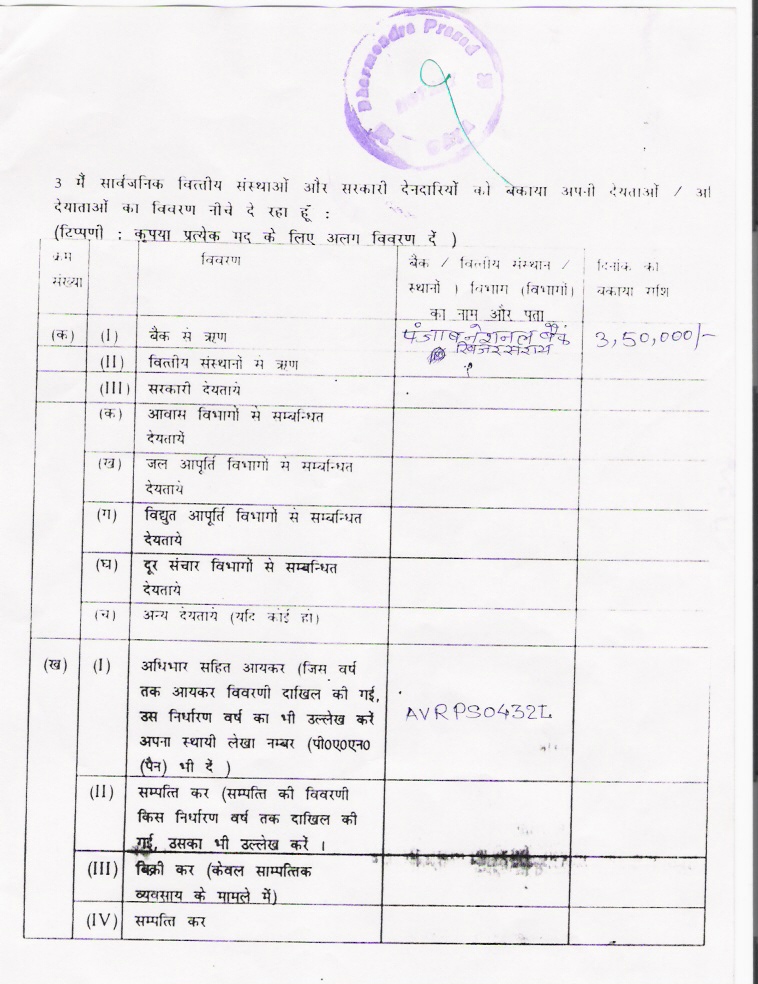 Dharmendra Prasad
3 मैं सार्वजनिक वित्तीय संस्थाओं और सरकारी देनदारियों को बकाया अपनी देयताओं /
देयाताओं का विवरण नीचे दे रहा हूँ :
(टिप्पणी : कृपया प्रत्येक मद के लिए अलग विवरण दें )
क्रम संख्या
विवरण
बैंक / वित्तीय संस्थान /
स्थानों । विभाग (विभागों)
का नाम और पता
दिनांक का
बकाया राशि
(क) (I) बैंक से ऋण पंजाब नेशनल बैंक 3,50,000/-
खिजरसराय
(II) वित्तीय संस्थानों से ऋण
(III) सरकारी देयतायें
(क) आवास विभागों से सम्बन्धित
देयतायें
(ख) जल आपूर्ति विभागों से सम्बन्धित
देयतायें
(ग) विद्युत आपूर्ति विभागों से सम्बन्धित
देयतायें
(घ) दूर संचार विभागों से सम्बन्धित
देयतायें
(च) अन्य देयतायें (यदि कोई हो)
(ख) (I) अधिभार सहित आयकर (जिम वर्ष
तक आयकर विवरणी दाखिल की गई,
उस निर्धारण वर्ष का भी उल्लेख करें AVRPS0432L
अपना स्थायी लेखा नम्बर (पी०ए०एन०
(पैन) भी दें )
(II) सम्पत्ति कर (सम्पत्ति की विवरणी
किस निर्धारण वर्ष तक दाखिल की
गई, उसका भी उल्लेख करें ।
(III) बिक्री कर (केवल साम्पत्तिक
व्यवसाय के मामले में)
(IV) सम्पत्ति कर